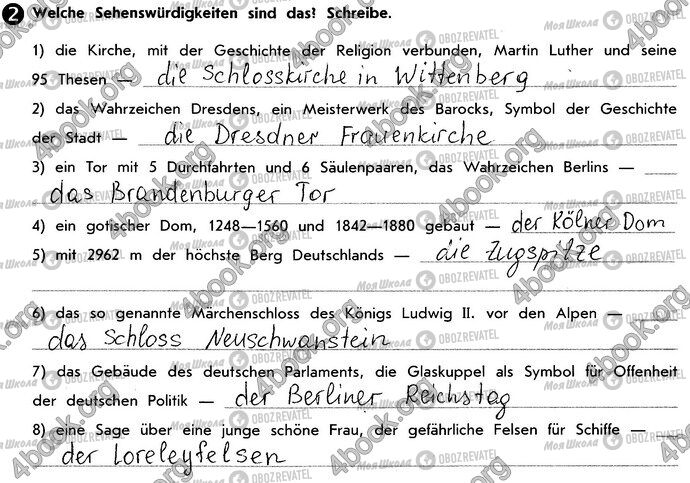 2 Welche Sehenswürdigkeiten sind das? Schreibe.
1) die Kirche, mit der Geschichte der Religion verbunden, Martin Luther und seine
95 Thesen — die Schlosskirche in Wittenberg
2) das Wahrzeichen Dresdens, ein Meisterwerk des Barocks, Symbol der Geschichte
der Stadt — die Dresdner Frauenkirche
3) ein Tor mit 5 Durchfahrten und 6 Säulenpaaren, das Wahrzeichen Berlins —
das Brandenburger Tor
4) ein gotischer Dom, 1248—1560 und 1842—1880 gebaut — der Kölner Dom
5) mit 2962 m der höchste Berg Deutschlands — die Zugspitze
6) das so genannte Märchenschloss des Königs Ludwig II. vor den Alpen —
das Schloss Neuschwanstein
7) das Gebäude des deutschen Parlaments, die Glaskuppel als Symbol für Offenheit
der deutschen Politik — der Berliner Reichstag
8) eine Sage über eine junge schöne Frau, der gefährliche Felsen für Schiffe —
der Loreleyfelsen